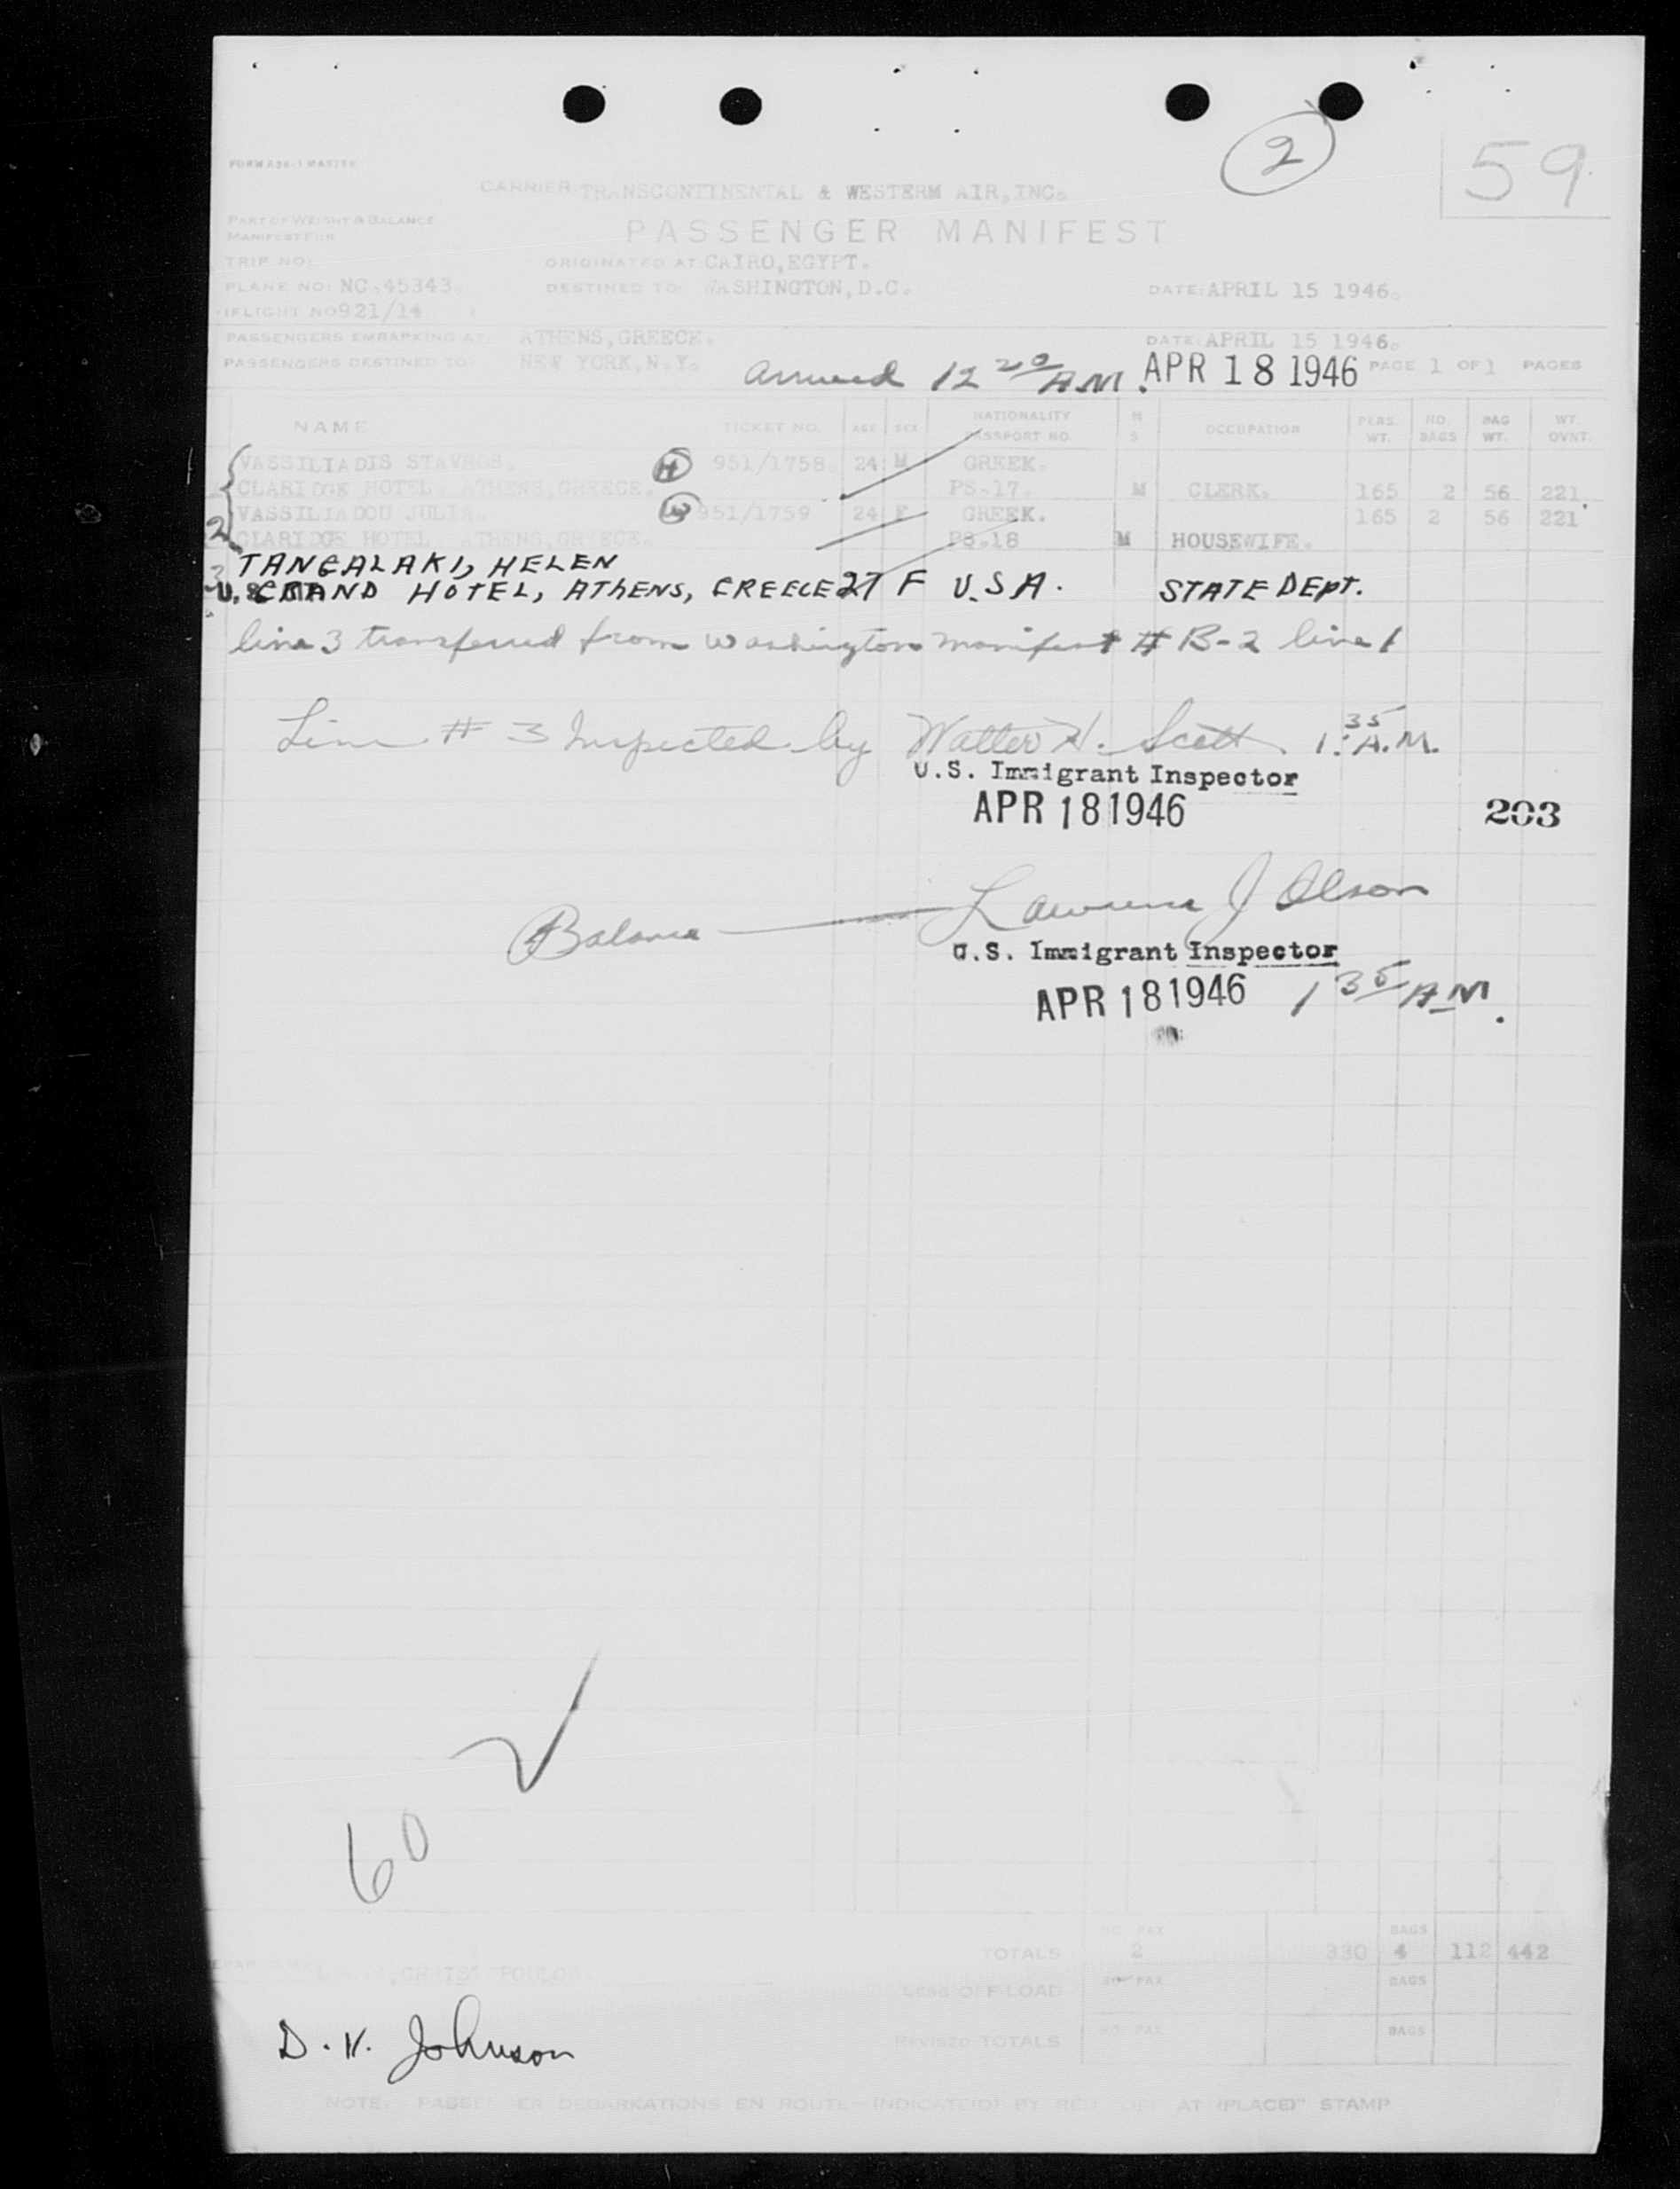 2
59
CARRIER: TRANSCONTINENTAL & WESTERM AIR, INC.
PART OF WEIGHT & BALANCE
MANIFEST FOR
PASSENGER MANIFEST
TRIP NO:
ORIGINATED AT: CAIRO, EGYPT.
PLANE NO: NC-45343.
DESTINED TO: WASHINGTON, D.C.
DATE: APRIL 15 1946.
FLIGHT NO 921/14
PASSENGERS EMBARKING AT: ATHENS, GREECE. DATE: APRIL 15 1946.
PASSENGERS DESTINED TO: NEW YORK, N.Y. PAGE 1 OF 1 PAGES
arrived 12 20 A.M. APR 18 1946
NAME TICKET NO. AGE SEX NATIONALITY PASSPORT NO. M S OCCUPATION PERS. WT. NO. BAGS BAG WT. WT. OVNT.
VASSILIADIS STAVROS. H 951/1758. 24 M GREEK.
CLARIDGE HOTEL. ATHENS, GREECE. PS-17. M CLERK. 165 2 56 221.
VASSILIADOU JULIA. W 951/1759 24 F GREEK. 165 2 56 221
2 CLARIDGE HOTEL ATHENS, GREECE. PS-18 M HOUSEWIFE.
3 TANGALAKI, HELEN
GRAND HOTEL, ATHENS, GREECE 27 F U.S.A. STATE DEPT.
line 3 transferred from Washington manifest # B-2 line 1
Line # 3 Inspected by Walter H. Scott 1:35 A.M.
U.S. Immigrant Inspector
APR 18 1946
203
Balance Lawrence J Olson
U.S. Immigrant Inspector
APR 18 1946 1 35 AM.
60
NO. PAX BAGS
TOTALS 2 330 4 112 442
LESS OFF-LOAD NO. PAX BAGS
REVISED TOTALS NO. PAX BAGS
D. H. Johnson
NOTE: PASSENGER DEBARKATIONS EN ROUTE INDICATED BY AT "PLACED" STAMP